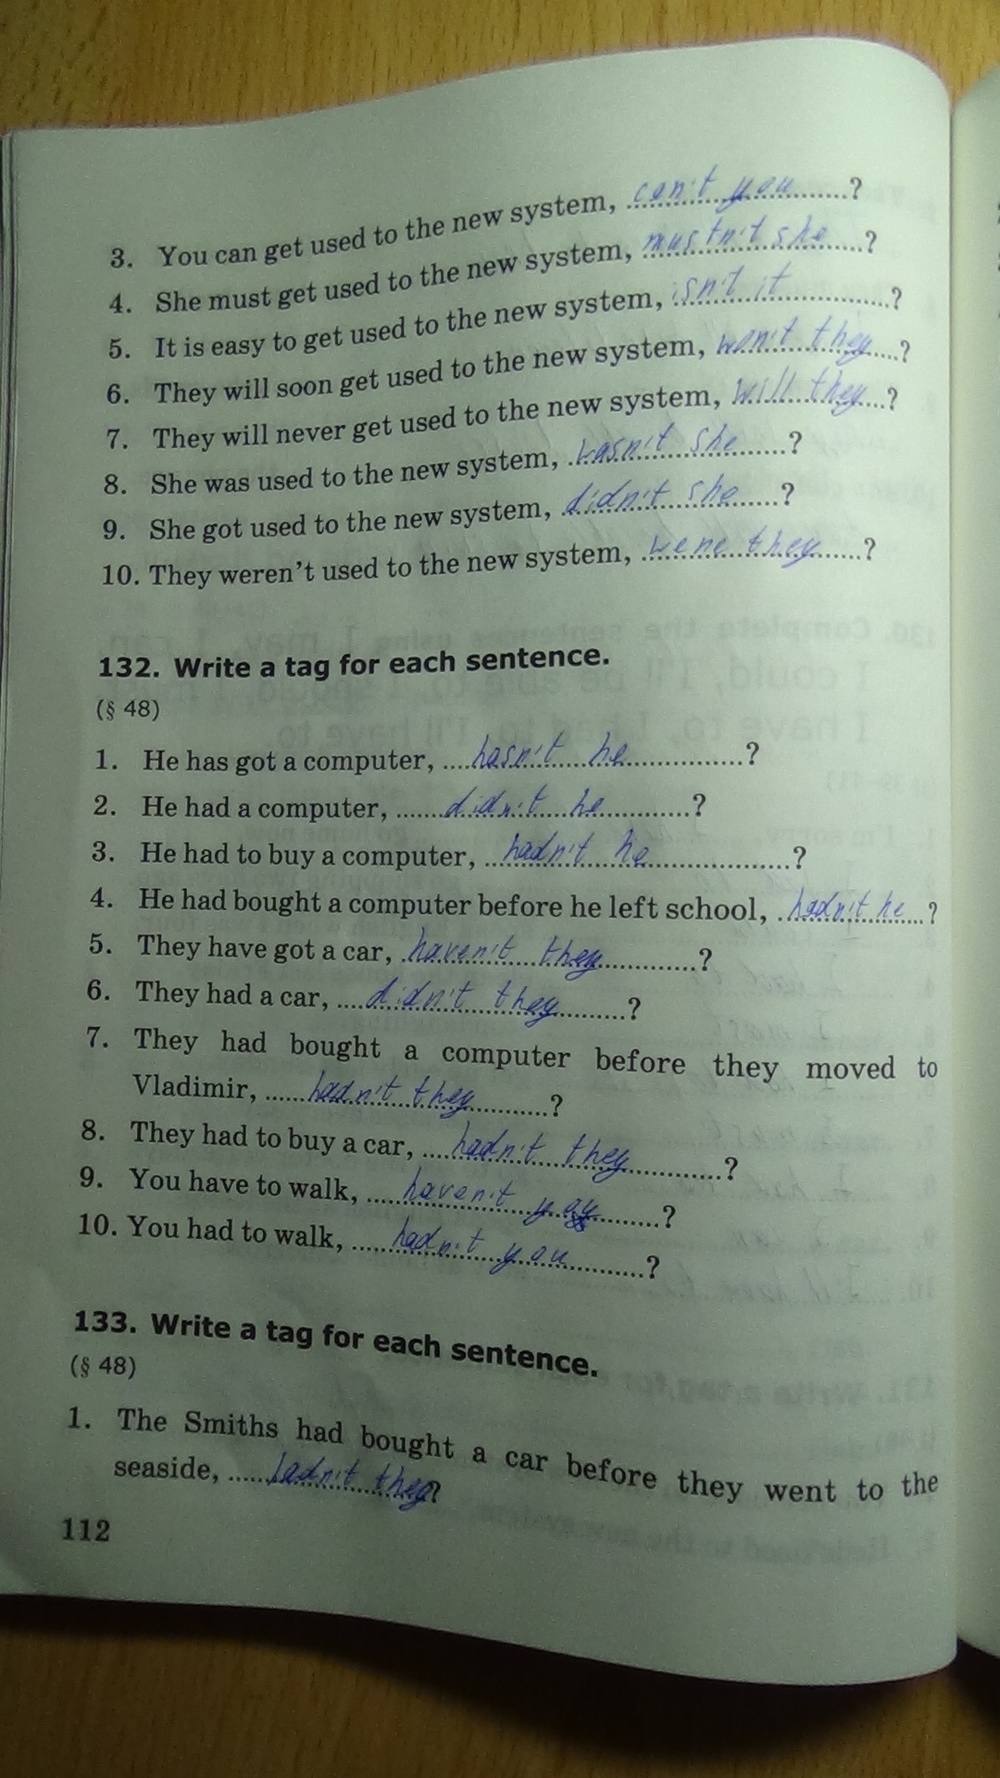 3. You can get used to the new system, can't you ?
4. She must get used to the new system, mustn't she ?
5. It is easy to get used to the new system, isn't it ?
6. They will soon get used to the new system, won't they ?
7. They will never get used to the new system, will they ?
8. She was used to the new system, wasn't she ?
9. She got used to the new system, didn't she ?
10. They weren't used to the new system, were they ?
132. Write a tag for each sentence.
(§ 48)
1. He has got a computer, hasn't he ?
2. He had a computer, didn't he ?
3. He had to buy a computer, hadn't he ?
4. He had bought a computer before he left school, hadn't he ?
5. They have got a car, haven't they ?
6. They had a car, didn't they ?
7. They had bought a computer before they moved to
Vladimir, hadn't they ?
8. They had to buy a car, hadn't they ?
9. You have to walk, haven't you ?
10. You had to walk, hadn't you ?
133. Write a tag for each sentence.
(§ 48)
1. The Smiths had bought a car before they went to the
seaside, hadn't they?
112